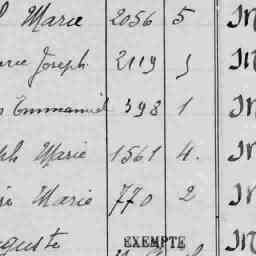 Marie 2056 5 M
Joseph 2119 5 M
Emmanuel 398 1 M
Marie 1561 4. M
Marie 770 2 M
EXEMPTE M